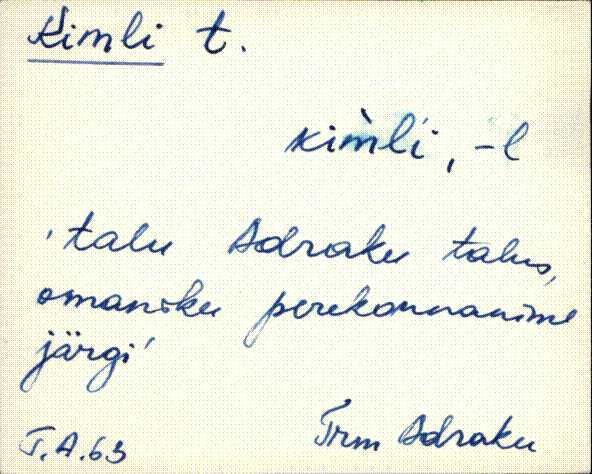 Kimli t.
kim̀li, -l
'talu Adraku talus,
omaniku perekonnanime
järgi'
Trm Adraku
J.A.63